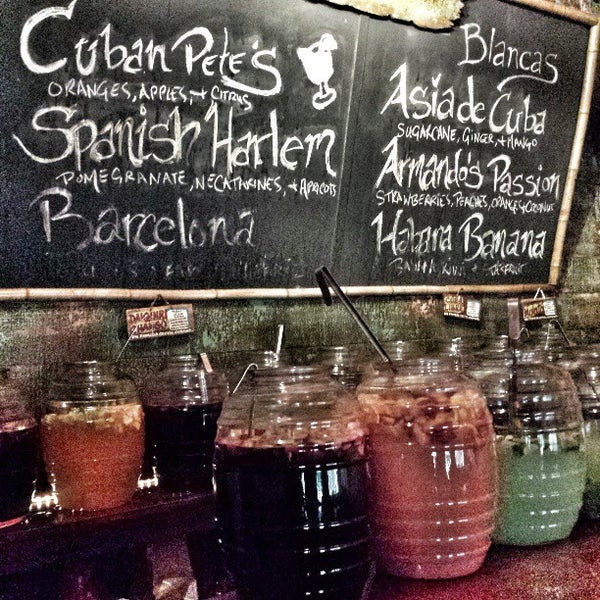 Cuban Pete's
ORANGES, APPLES, + CITRUS
Spanish Harlem
POMEGRANATE, NECATARINES, + APRICOTS
Barcelona
Blancas
Asia de Cuba
SUGARCANE, GINGER, + MANGO
Armando's Passion
STRAWBERRIES, PEACHES, ORANGES + COCONUT
Habana Banana